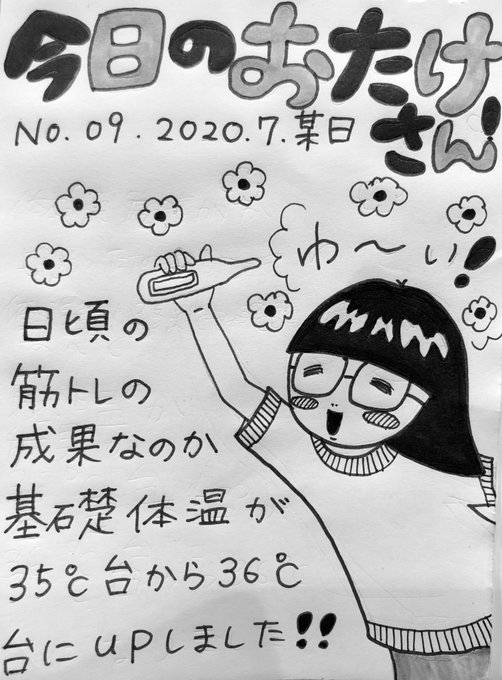 今日のおたけさん!
No.09.2020.7.某日
わ〜い!
日頃の
筋トレの
成果なのか
基礎体温が
35℃台から36℃
台にUPしました!!